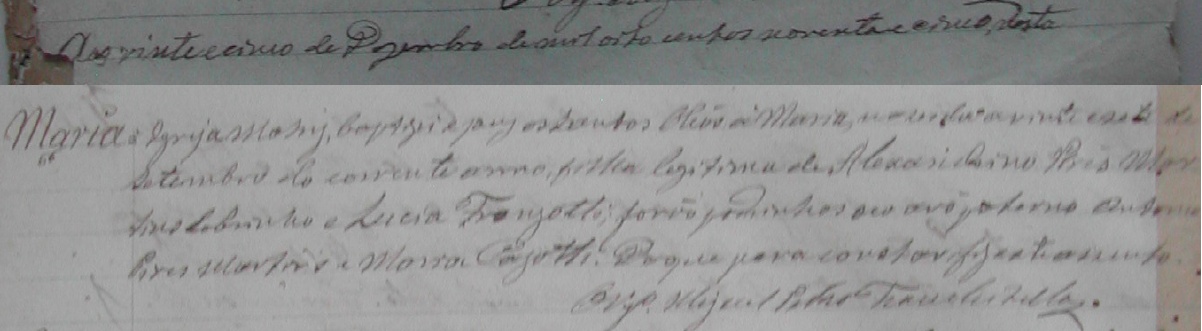 Aos vinte e cinco de Dezembro de mil oito centos noventa e cinco, nesta
Maria Igreja Matriz, baptizei e puz os Santos Oleos á Maria, nascida a vinte e sete de
Setembro do corrente anno, filha legitima de Alexandrino Pires Mar
tins Sobrinho e Lucia Franzotti; forão padrinhos seo avô paterno Antonio
Pires Martins e Maria Cazotti. Do que para constar fiz este assento.
O Vigº. Miguel